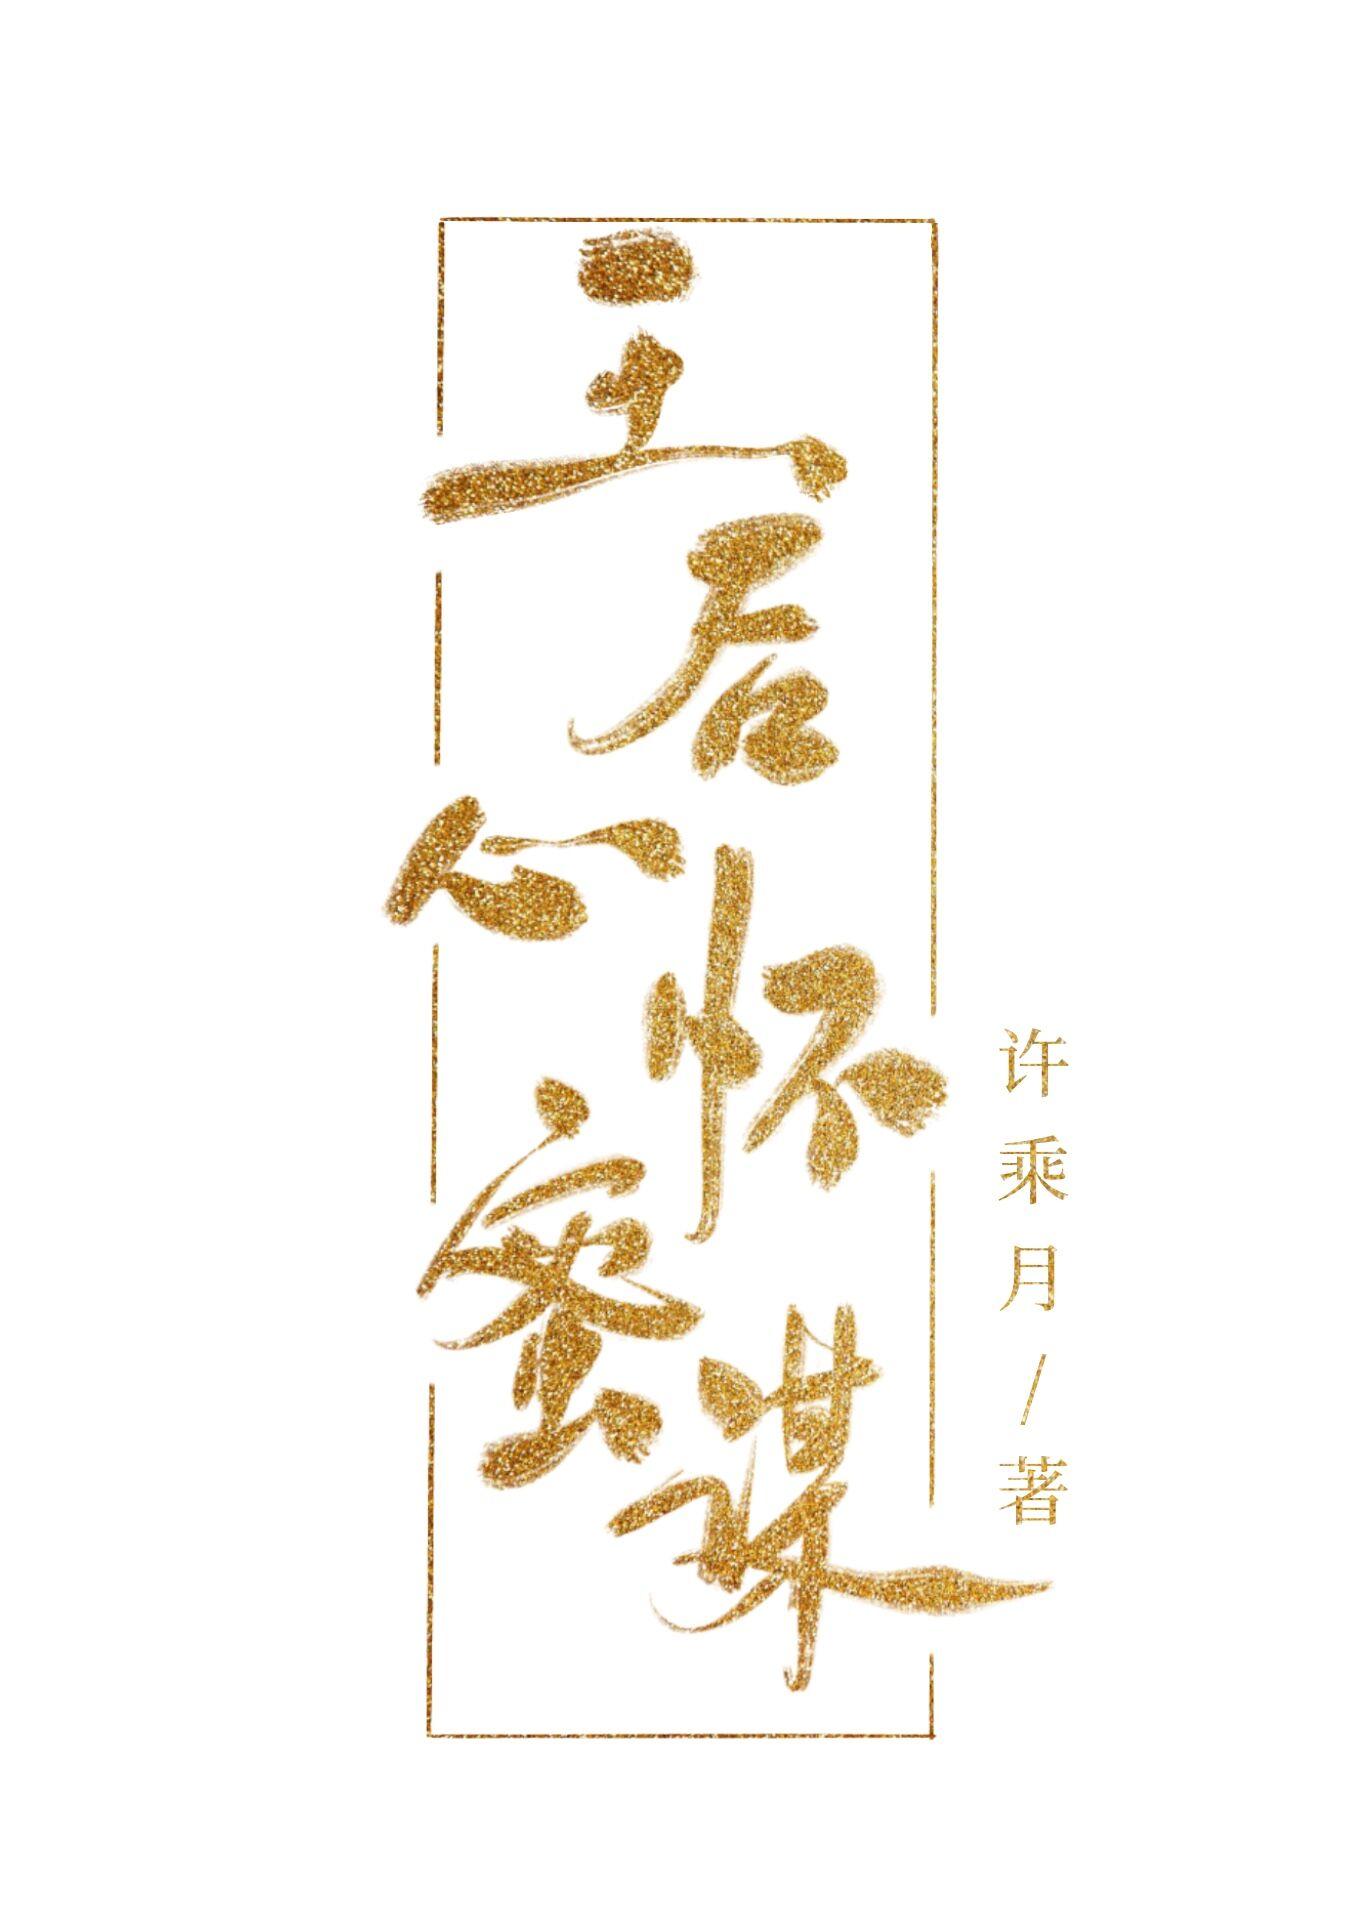 王后心怀蜜谋
许乘月/著